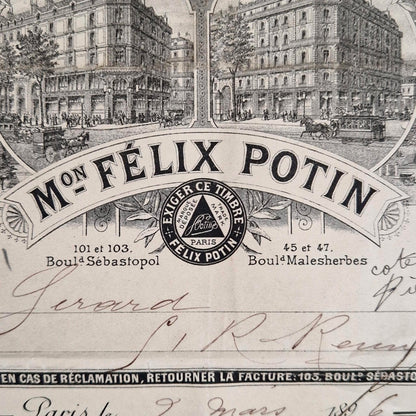 Mon FÉLIX POTIN
EXIGER CE TIMBRE
MARQUE DÉPOSÉE
TRADE MARK
F. Potin
PARIS
FÉLIX POTIN
101 et 103.
Boulᵈ Sébastopol
45 et 47.
Boulᵈ Malesherbes
Gérard
EN CAS DE RÉCLAMATION, RETOURNER LA FACTURE: 103, BOULᴰ SÉBASTO
Paris le 2 mars 1896